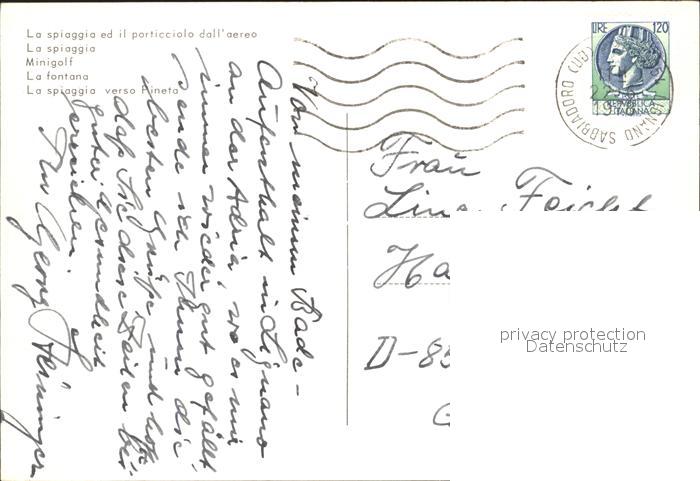 La spiaggia ed il porticciolo dall'aereo
La spiaggia
Minigolf
La fontana
La spiaggia verso Pineta
LIRE 120
REPUBBLICA
ITALIANA
SABBIADORO
Von meinem Bade-
Aufenthalt in Lignano
an der Adria, wo es mir
immer wieder gut gefällt
sende ich Ihnen die
besten Grüße und hoffe
daß Sie diese Zeilen bei
guter Gesundheit
erreichen.
Ihr Georg
Frau
Lina
Ha
D-85
privacy protection
Datenschutz